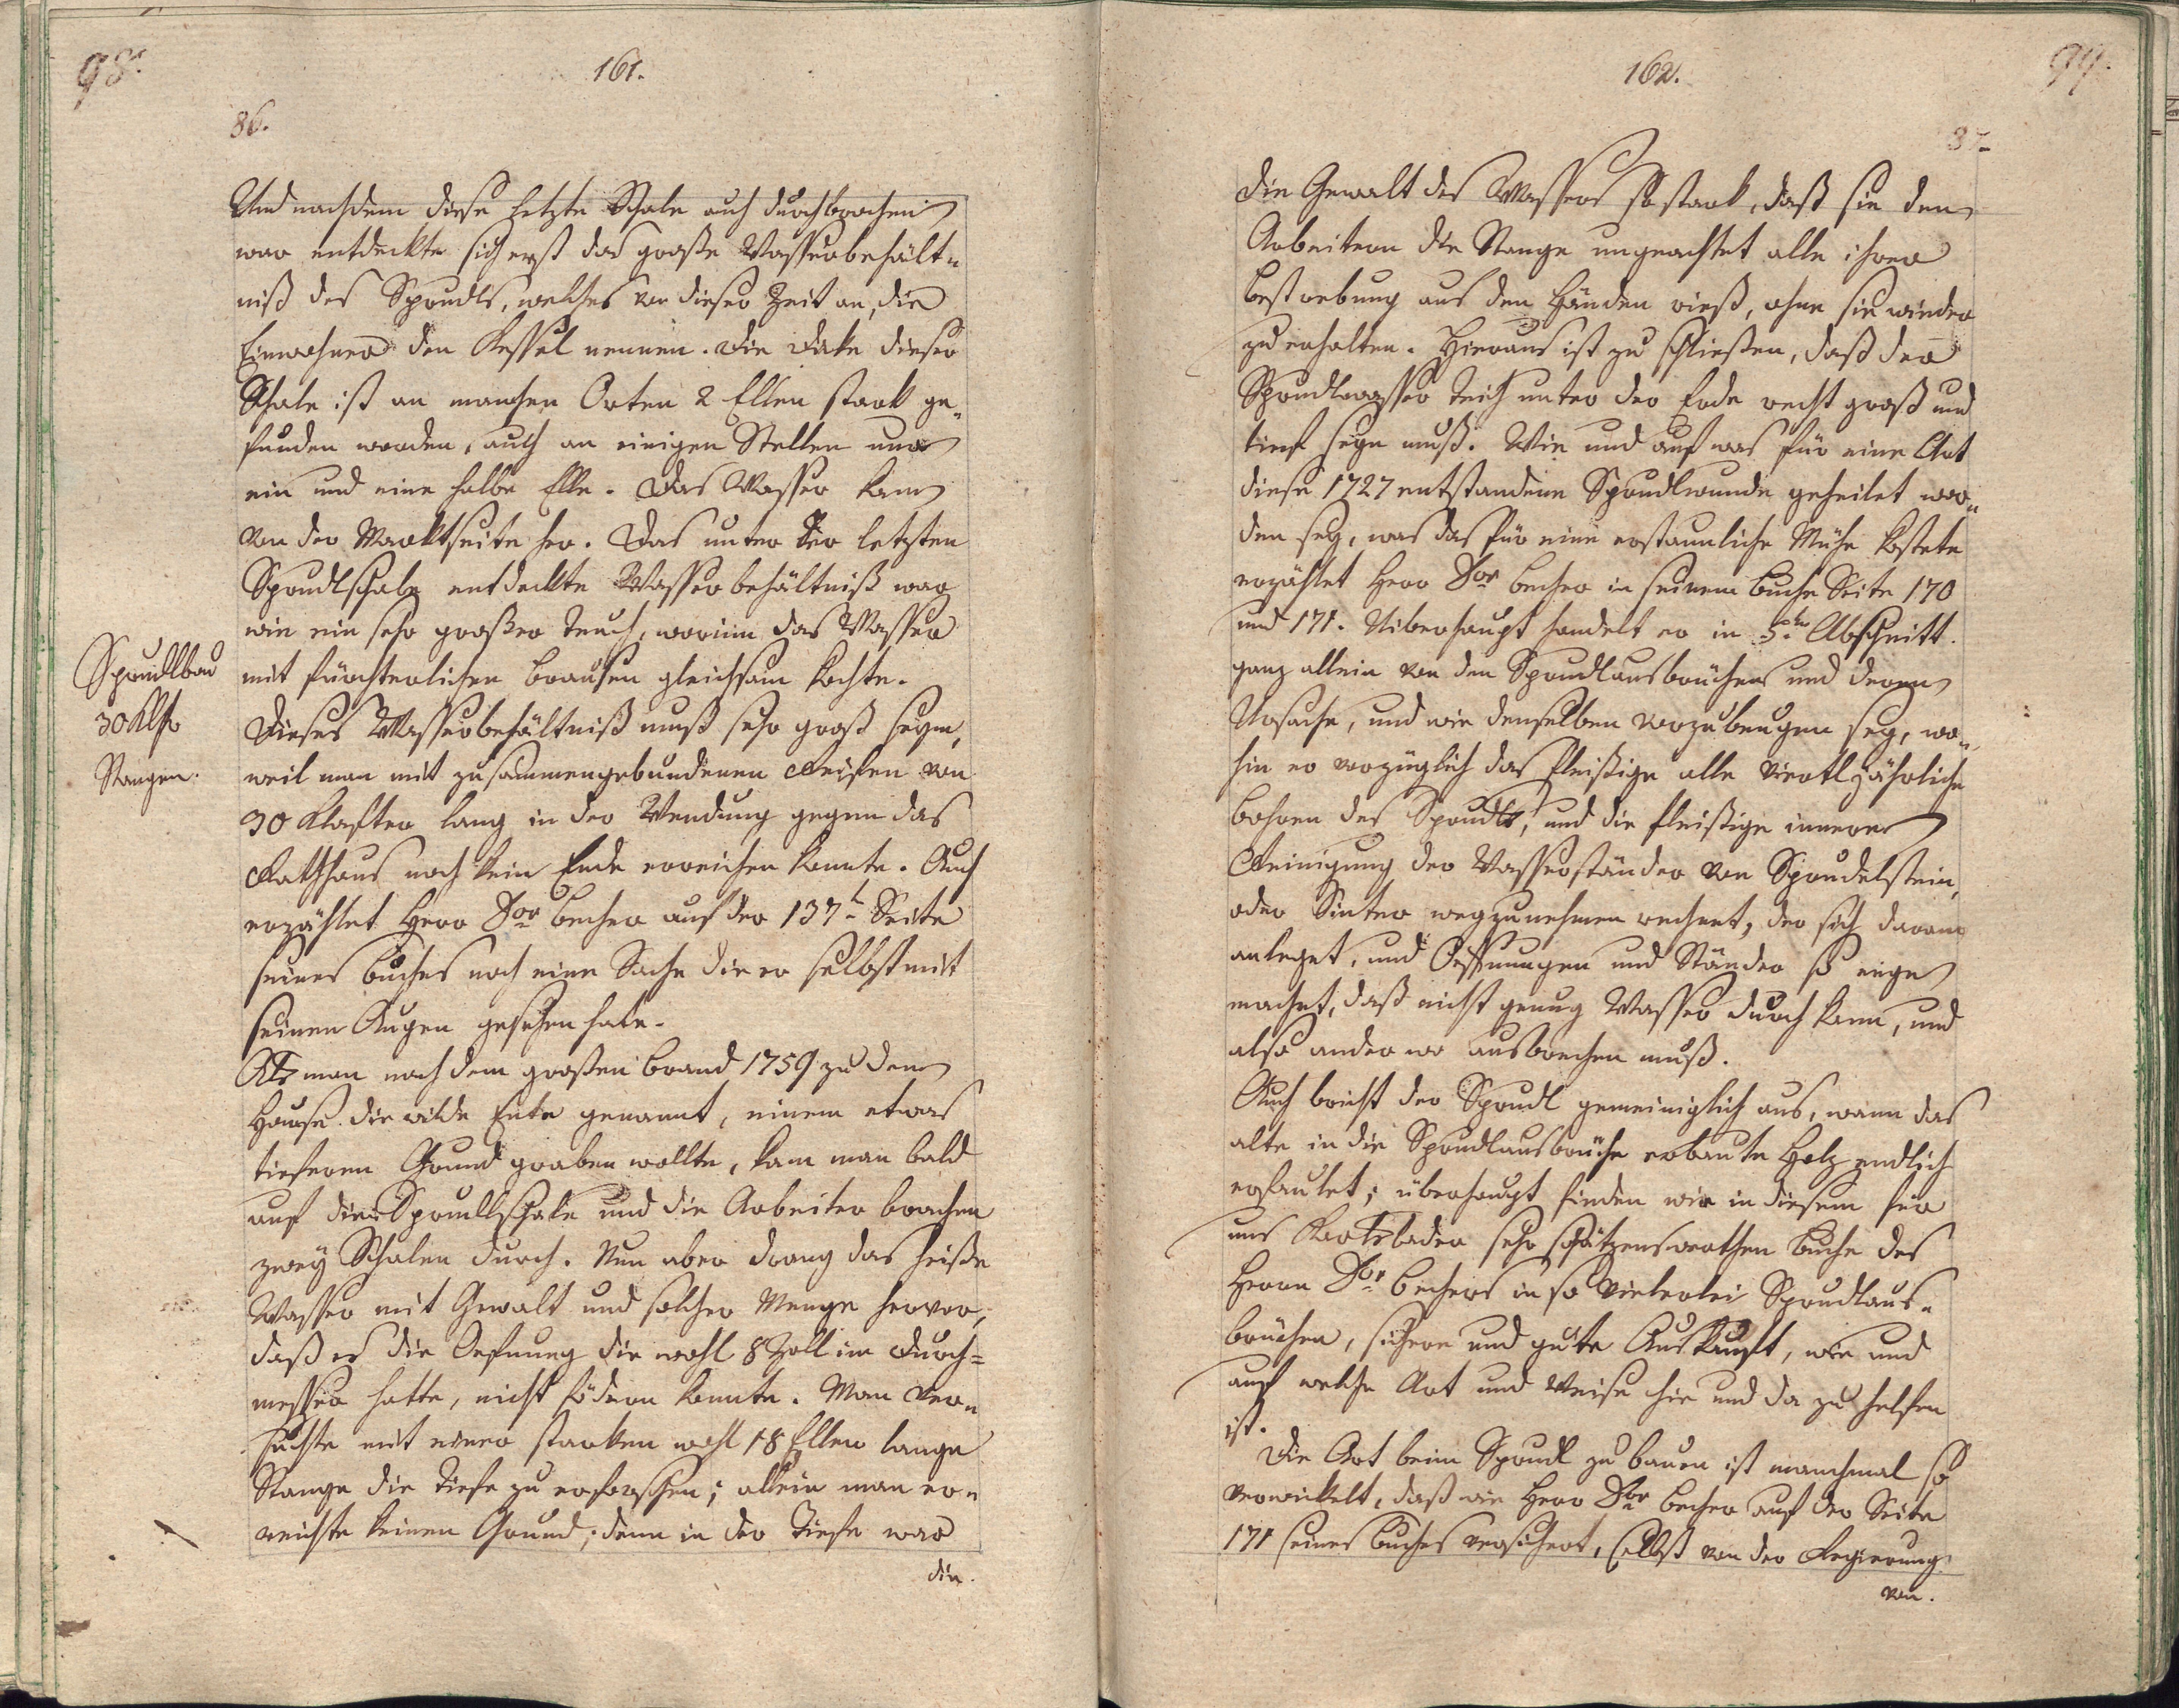 98.
161.
86.
Und nachdem diese letzte Schale auch durchbrochen
war entdeckte sich erst das große Wasserbehält=
niß des Sprudls, welches von dieser Zeit an, die
Einwohner den Kessel nennen. Die Dicke dieser
Schale ist an manchen Orten 2 Ellen stark ge=
funden worden, auch an einigen Stellen nur
ein und eine halbe Elle. Das Wasser kam
von der Marktseite her. Das unter der letzten
Sprudlschale entdeckte Wasserbehältniß war
wie ein sehr großer Teuch, worinn das Wasser
mit fürchterlichen Brausen gleichsam kochte.
Dieses Wasserbehältniß muß sehr groß seyn,
weil man mit zusammengebundenen Reifen von
30 Klafter lang in der Wendung gegen das
Rathhaus noch kein Ende erreichen konnte. Auch
erzählet Herr Dor Becher auf der 137t Seite
seines Buches noch eine Sache die er selbst mit
seinen Augen gesehen habe.
Als man nach dem großen Brand 1759 zu dem
Hause die wilde Ente genannt, einem etwas
tieferen Grund graben wollte, kam man bald
auf die Sprudlschale und die Arbeiter brachen
zwey Schalen durch. Nun aber drang das heiße
Wasser mit Gewalt und solcher Menge hervor,
daß es die Oefnung die wohl 8 Zoll im Durch=
messer hatte, nicht födern konnte. Man ver=
suchte mit einer starken wohl 18 Ellen lange
Stange die Tiefe zu erforschen; allein man er=
reichte keinen Grund; denn in der Tiefe war
die.
Sprudlbau
30 Klftr
Stangen.
162.
99.
87.
die Gewalt des Wassers so stark, daß sie den
Arbeitern die Stange ungeachtet alle ihrer
Bestrebung aus den Händen rieß, ohne sie wieder
zu erhalten. Hieraus ist zu schließen, daß der
Sprudlwasser Teich unter der Erde recht groß und
tief seyn muß. Wie und auf was für eine Art
diese 1727 entstandene Sprudlwunde geheilet wor=
den sey, was das für eine erstaunliche Mühe kostete
erzählet Herr Dor Becher in seinem Buche Seite 170
und 171. Uiberhaupt handelt er in 5ten Abschnitt.
ganz allein von den Sprudlausbrüchen und deren
Ursache, und wie denselben vorzubeugen sey, wo=
hin er vorzüglich das fleißige alle viertljährliche
bohren des Sprudls, und die fleißige innere
Reinigung der Wasserständer von Sprudelstein,
oder Sinter wegzunehmen rechnet, der sich daran
anleget, und Oeffnungen und Ständer so enge
machet, daß nicht genug Wasser durch kann, und
also anderwo ausbrechen muß.
Auch bricht der Sprudl gemeiniglich aus, wann das
alte in die Sprudlausbrüche erbaute Holz endlich
erfaulet; überhaupt finden wir in diesem für
uns Karlsbader sehr schätzenswerthen Buche des
Herrn Dor Bechers in so vielerlei Sprudlaus=
brüchen, sichere und gute Auskunft, wie und
auf welche Art und Weise hie und da zu helfen
ist.
Die Art beim Sprudl zu bauen ist manchmal so
verwickelt, daß wie Herr Dor Becher auf der Seite
171 seines Buches versichert, selbst von der Regierung
von.